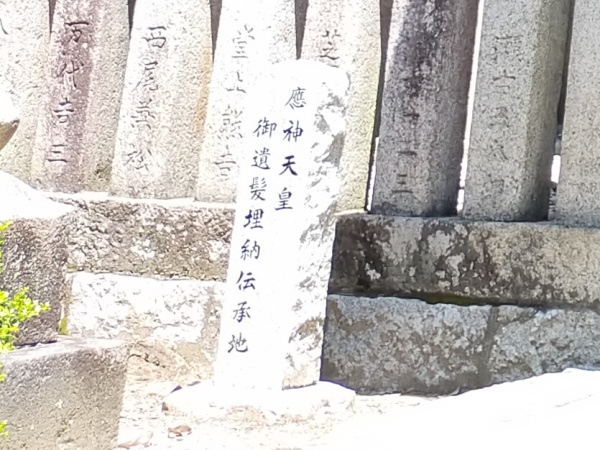 應神天皇
御遺髪埋納伝承地
万代吉三
西尾英松
堂上熊吉
芝